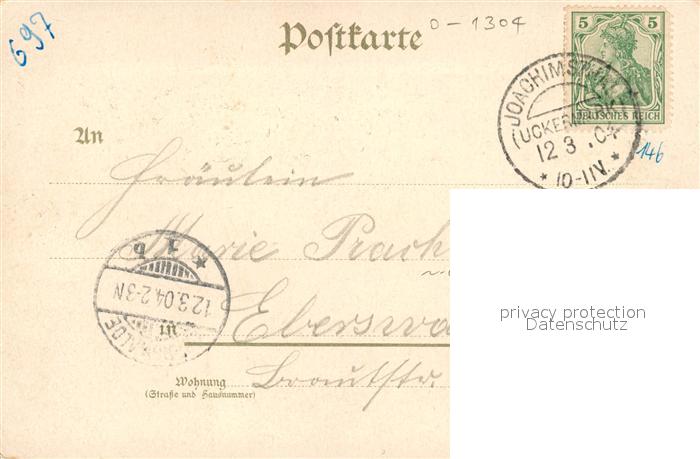 697
0-1304
Postkarte
5 5
DEUTSCHES REICH
JOACHIMSTHAL
(UCKERM.)
12 3 .04
* 10-11V. *
146
An
Fräulein
Marie Prach
* 1 b
12.3.04.2-3N
in Eberswa
Wohnung
(Straße und Hausnummer)
Brautstr.
privacy protection
Datenschutz